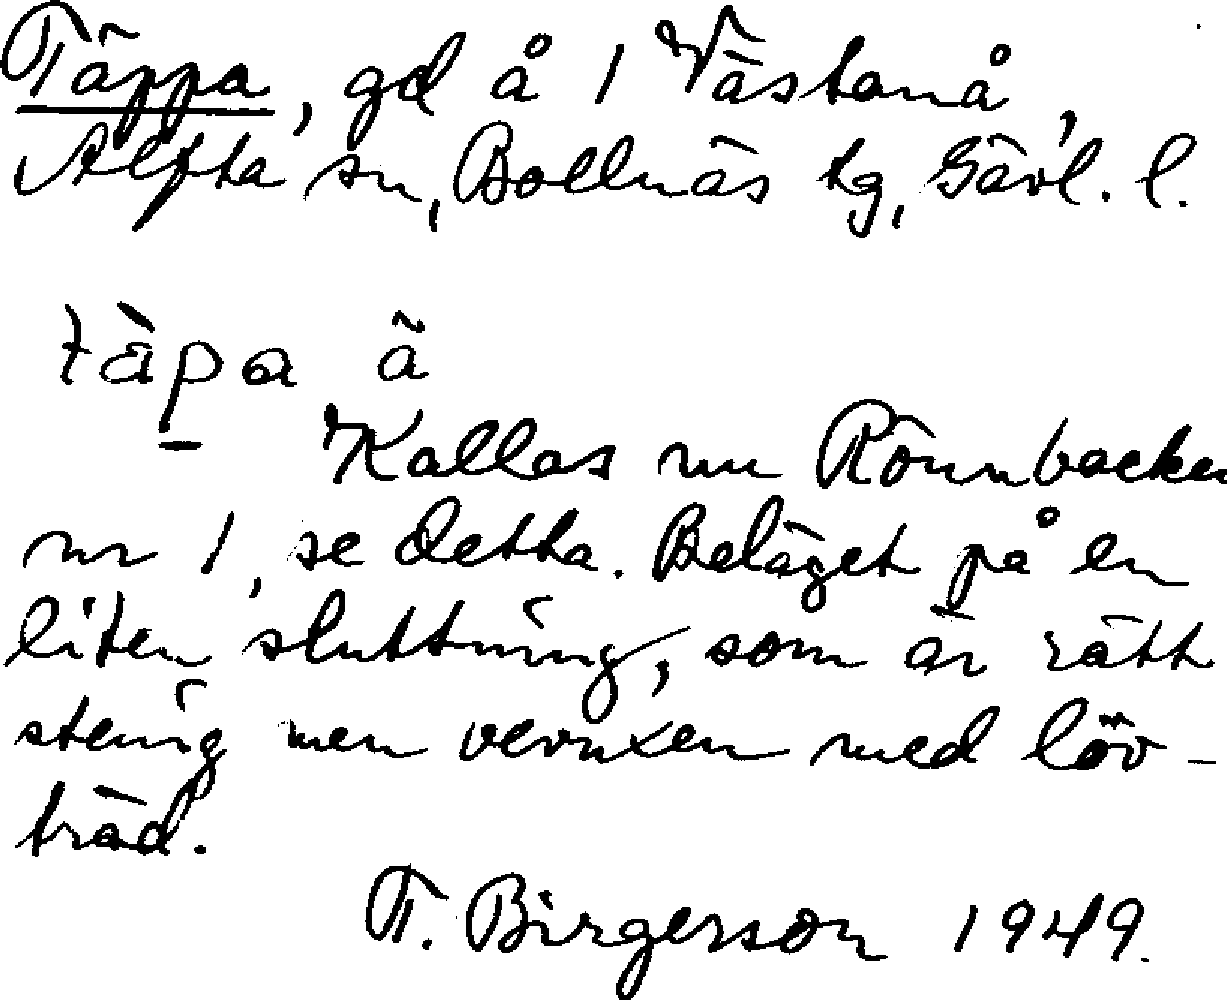 Täppa, gd å 1 Västanå,
Alfta sn, Bollnäs tg, Gävl. l.
tàp̠a ã
Kallas nu Rönnbacken
nr 1, se detta. Beläget på en
liten sluttning, som är rätt
stenig men vevuxen med löv-
träd.
T. Birgerson 1949.